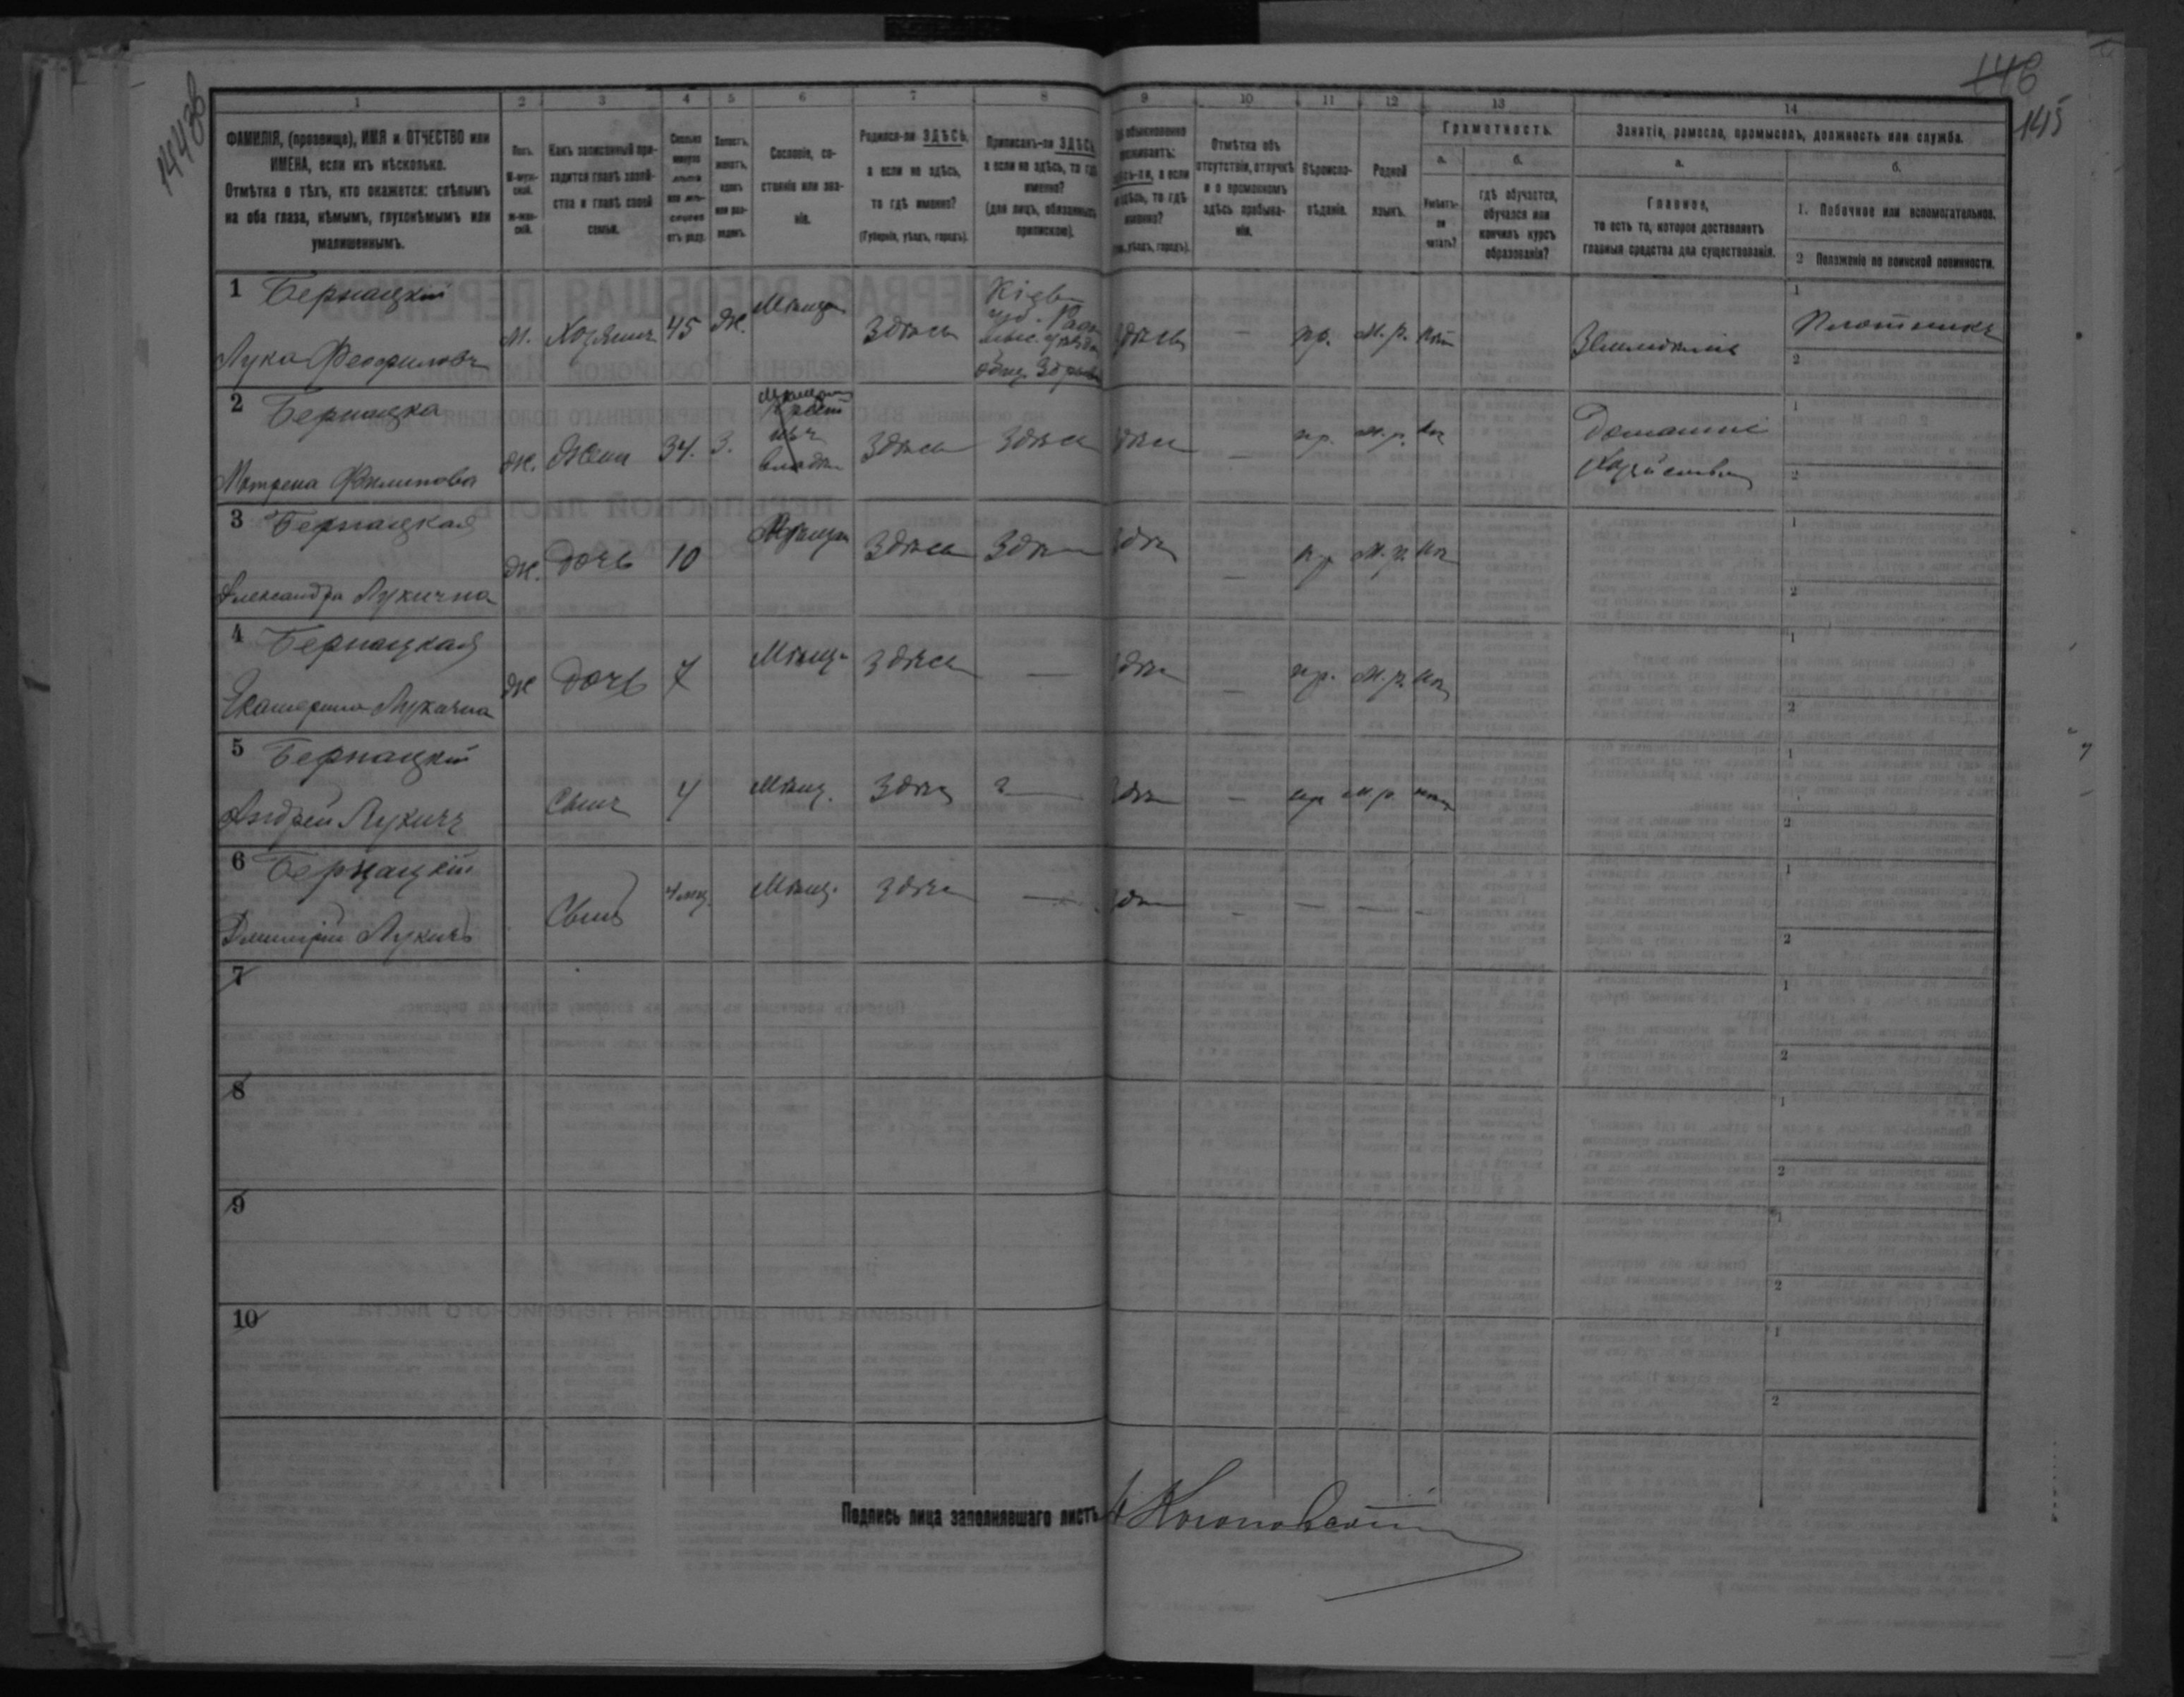 146
145
1 2 3 4 5 6 7 8 9 10 11 12 13 14
ФАМИЛІЯ, (прозвище), ИМЯ и ОТЧЕСТВО или
ИМЕНА, если ихъ нѣсколько.
Отмѣтка о тѣхъ, кто окажется: слѣпымъ
на оба глаза, нѣмымъ, глухонѣмымъ или
умалишеннымъ.
Полъ.
Какъ записанный при-
ходится главѣ хозяй-
ства и главѣ своей
семьи.
Сколько
минуло
лѣтъ
или мѣ-
сяцевъ
отъ роду.
Холостъ,
женатъ,
вдовъ
или раз-
веденъ.
Сословіе, со-
стояніе или зва-
ніе.
Родился-ли ЗДѢСЬ,
а если не здѣсь,
то гдѣ именно?
(Губернія, уѣздъ, городъ).
Приписанъ-ли ЗДѢСЬ,
а если не здѣсь, то гдѣ
именно?
(для лицъ, обязанныхъ
припискою).
обыкновенно
проживаетъ:
а если
то гдѣ
именно?
уѣздъ, городъ).
Отмѣтка объ
отсутствіи, отлучкѣ
и о временномъ
здѣсь пребыва-
ніи.
Вѣроиспо-
вѣданіе.
Родной
языкъ.
Грамотность.
а.
Умѣетъ-
ли
читать?
б.
гдѣ обучается,
обучался или
кончилъ курсъ
образованія?
Занятія, ремесло, промыселъ, должность или служба.
а.
Главное,
то есть то, которое доставляетъ
главныя средства для существованія.
б.
1. Побочное или вспомогательное.
2 Положеніе по воинской повинности.
1 Бернацкій
Лука Феофиловъ
м. Хозяинъ 45 Ж. Мѣщан здѣсь
Кіев
здѣсь — пр. М.р. нѣт Земледѣліе
1
Плотникъ
2
2 Бернацка
Мотрена Филипова
ж. Жена 34. З. здѣсь здѣсь здѣсь — пр. м.р. нѣ
Домашнее
хозяйство
1
2
3 Бернацкая
Александра Лукична
ж. дочь 10 Мѣщан здѣсь здѣсь здѣ — пр М.р. нѣ
1
2
4 Бернацкая
Екатерина Лукична
ж дочь 7 Мѣщ. здѣсь — здѣ — пр. М.р. нѣ
1
2
5 Бернацкій
Андрей Лукичъ
Сынъ 4 Мѣщ. здѣ — здѣ — пр м.р. нѣт
1
2
6 Бернацкій
Дмитрій Лукичъ
Сынъ 4 мѣ. Мѣщ. здѣ — здѣ — — — —
1
2
7
1
2
8
1
2
9
1
2
10
1
2
Подпись лица заполнявшаго листъ